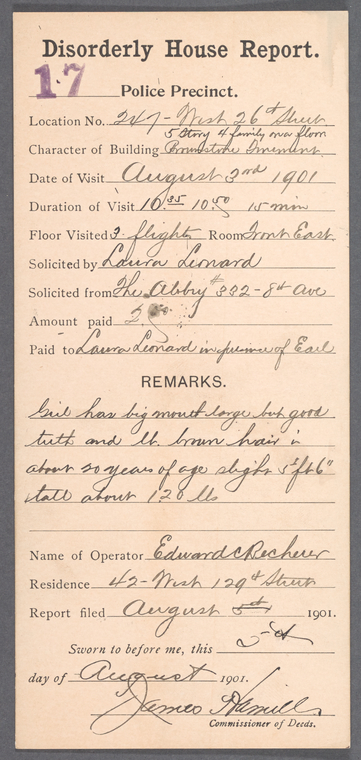 Disorderly House Report.
17 Police Precinct.
Location No. 247 - West 26th Street
5 Story 4 family on a floor
Character of Building Brownstone Tenement
Date of Visit August 3rd 1901
Duration of Visit 10 35 10 50 15 min
Floor Visited 3 flights Room Front East
Solicited by Laura Leonard
Solicited from The Abby # 332 - 8th Ave
Amount paid 2
Paid to Laura Leonard in presence of Earl
REMARKS.
Girl has big mouth large but good
teeth and lt. brown hair is
about 20 years of age slight 5 ft 6"
tall about 120 lbs
Name of Operator Edward C Becherer
Residence 42 - West 129th Street
Report filed August 1901.
Sworn to before me, this
day of August 1901.
James Hamill
Commissioner of Deeds.